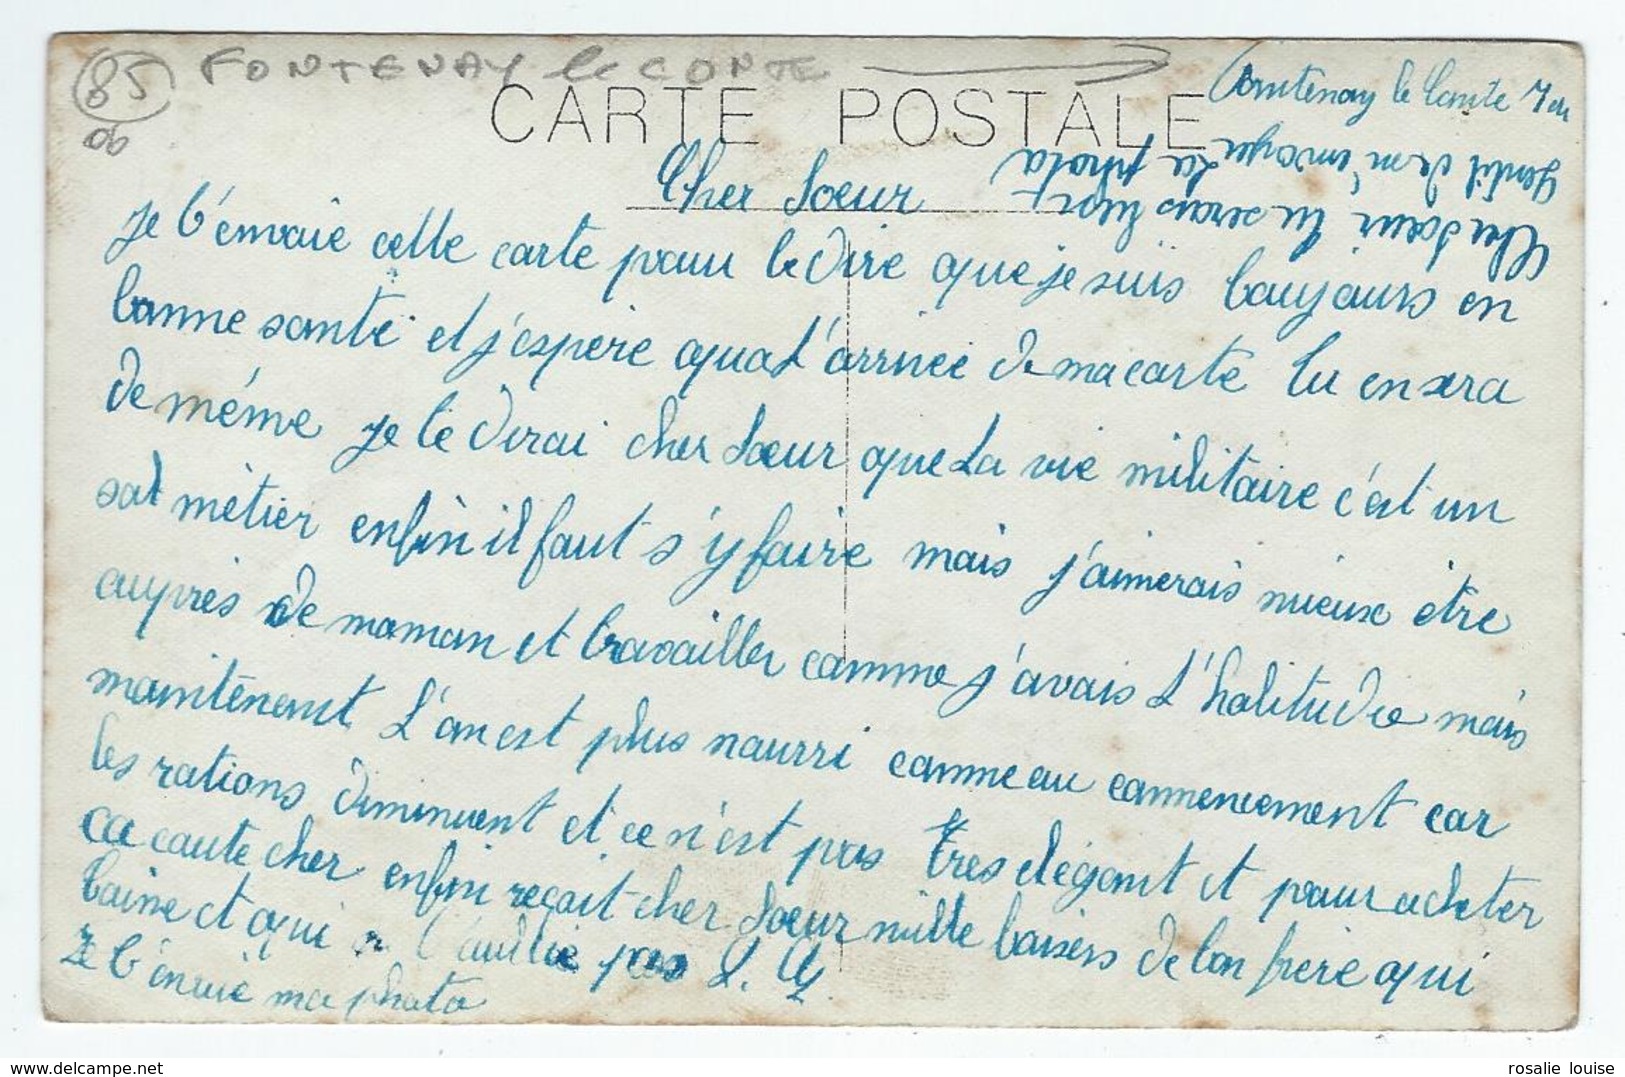 85
FONTENAY le CONTE
CARTE POSTALE
Comtenay le Conte
Cher Soeur
je t'envoie cette carte pour te dire que je suis toujours en
bonne santé et j'espère qua L'arrivée de ma carte tu en sera
de même je te dirai cher Soeur que La vie militaire c'est un
sal métier enfin il faut s'y faire mais j'aimerais mieux être
auprès de maman et travailler comme j'avais L'habitude mais
maintenent L'on est plus nourri comme au commencement car
les rations diminuent et ce n'est pas très elégant et pour acheter
ca caute cher enfin reçoit cher Soeur mille baisers de ton frère qui
t'aime et qui t'oublie pas L. G
Je t'envoie ma photo
Cher soeur tu serais bien
gentil de m'envoyer La photo
rosalie louise